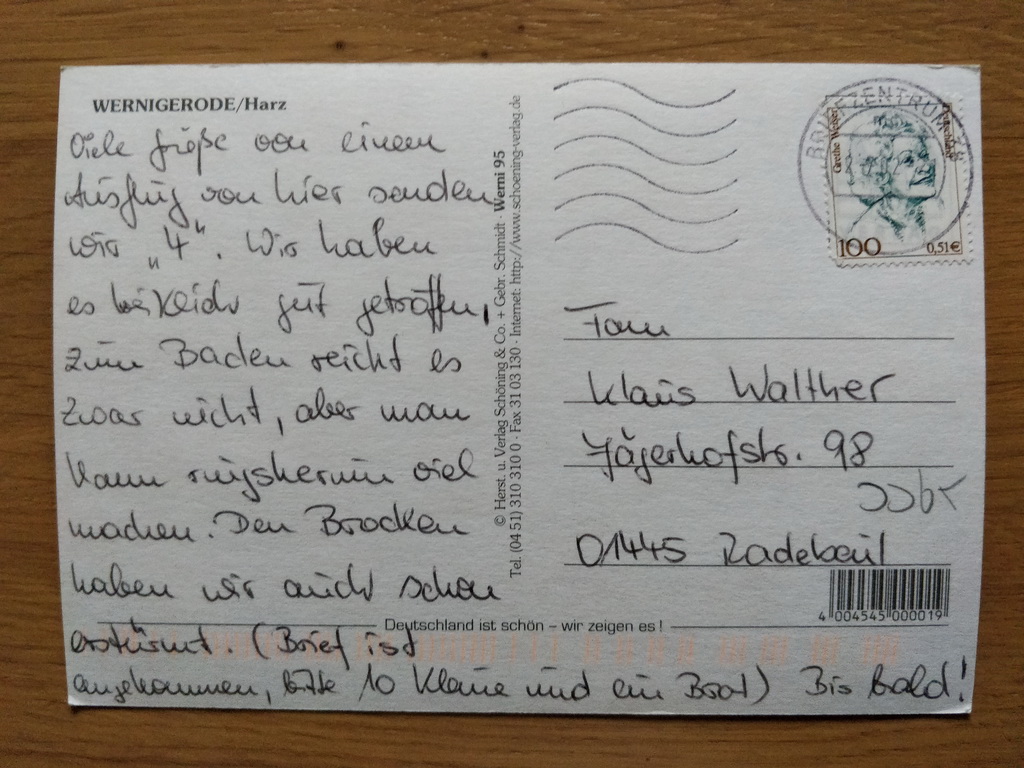 WERNIGERODE/Harz
Viele Grüße von einem
Ausflug von hier senden
wir „4“. Wir haben
es gut getroffen,
zum Baden reicht es
zwar nicht, aber man
kann ringsherum viel
machen. Den Brocken
haben wir auch schon
erstürmt. (Brief ist
angekommen, bitte 10 kleine und ein Brot) Bis bald!
© Herst. u. Verlag Schöning & Co. + Gebr. Schmidt · Werni 95
Tel. (04 51) 310 310 0 · Fax 31 03 130 · Internet: http://www.schoening-verlag.de
Deutschland ist schön – wir zeigen es!
BRIEFZENTRUM
Grethe Weiser
Deutschland
100
0,51€
Fam
Klaus Walther
Jägerhofstr. 98
01445 Radebeul
4 004545 000019